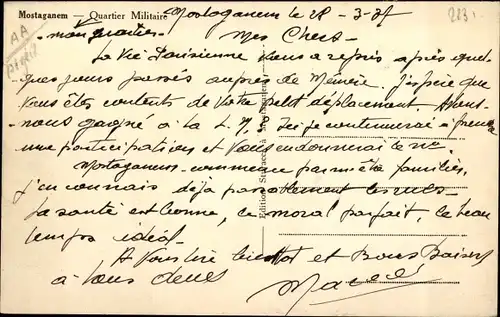 Mostaganem — Quartier Militaire Mostaganem le 28-3-37
mon quartier. Mes Chers
La Vie Parisienne vous a repris après quel-
ques jours passés auprès de Mémère. J'espère que
Vous êtes contents de Votre petit déplacement. Avons-
nous gagné à la L. N.? Ici je continuerai à prendre
une participation et Vous en donnerai le nº.
Mostaganem commence par m'être familier,
j'en connais déjà passablement les rues.
La santé est bonne, le moral parfait, le beau
temps idéal.
A Vous lire bientôt et Bons Baisers
à Vous deux
Marcel
223
AA
Algérie